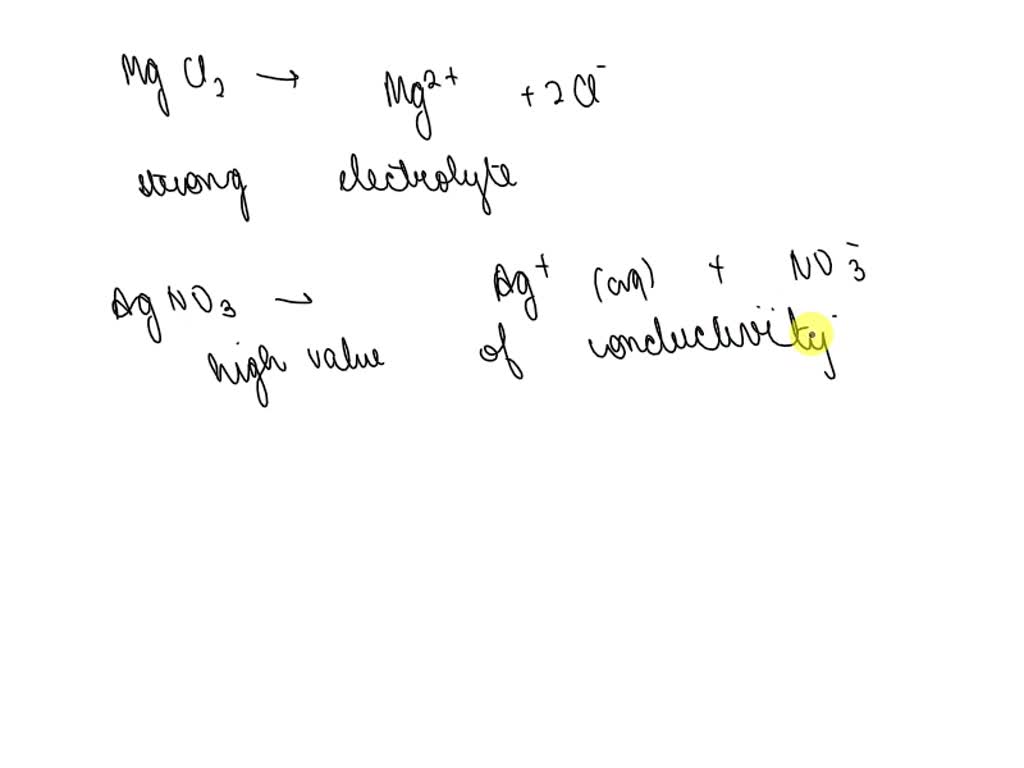 MgCl₂ → Mg²⁺ + 2Cl⁻
strong electrolyte
AgNO₃ → Ag⁺ (aq) + NO₃⁻
high value of conductivity